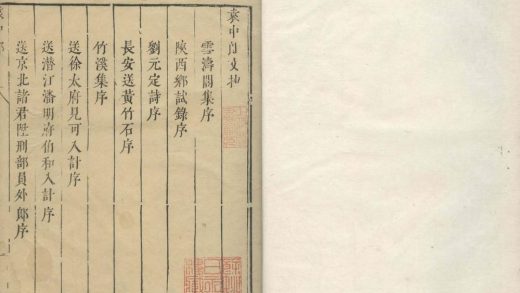 袁中郎文抄
雲濤閣集序
陝西鄉試錄序
劉元定詩序
長安送黃竹石序
竹溪集序
送徐太府見可入計序
送潛江潘明府伯和入計序
送京兆諸君陞刑部員外郎序